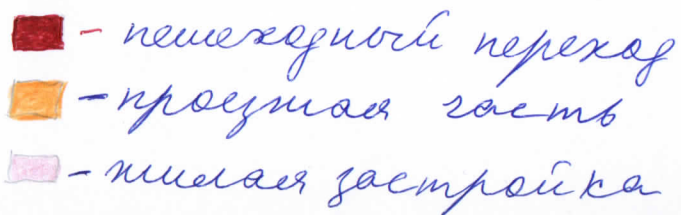 - пешеходный переход
- проезжая часть
- жилая застройка